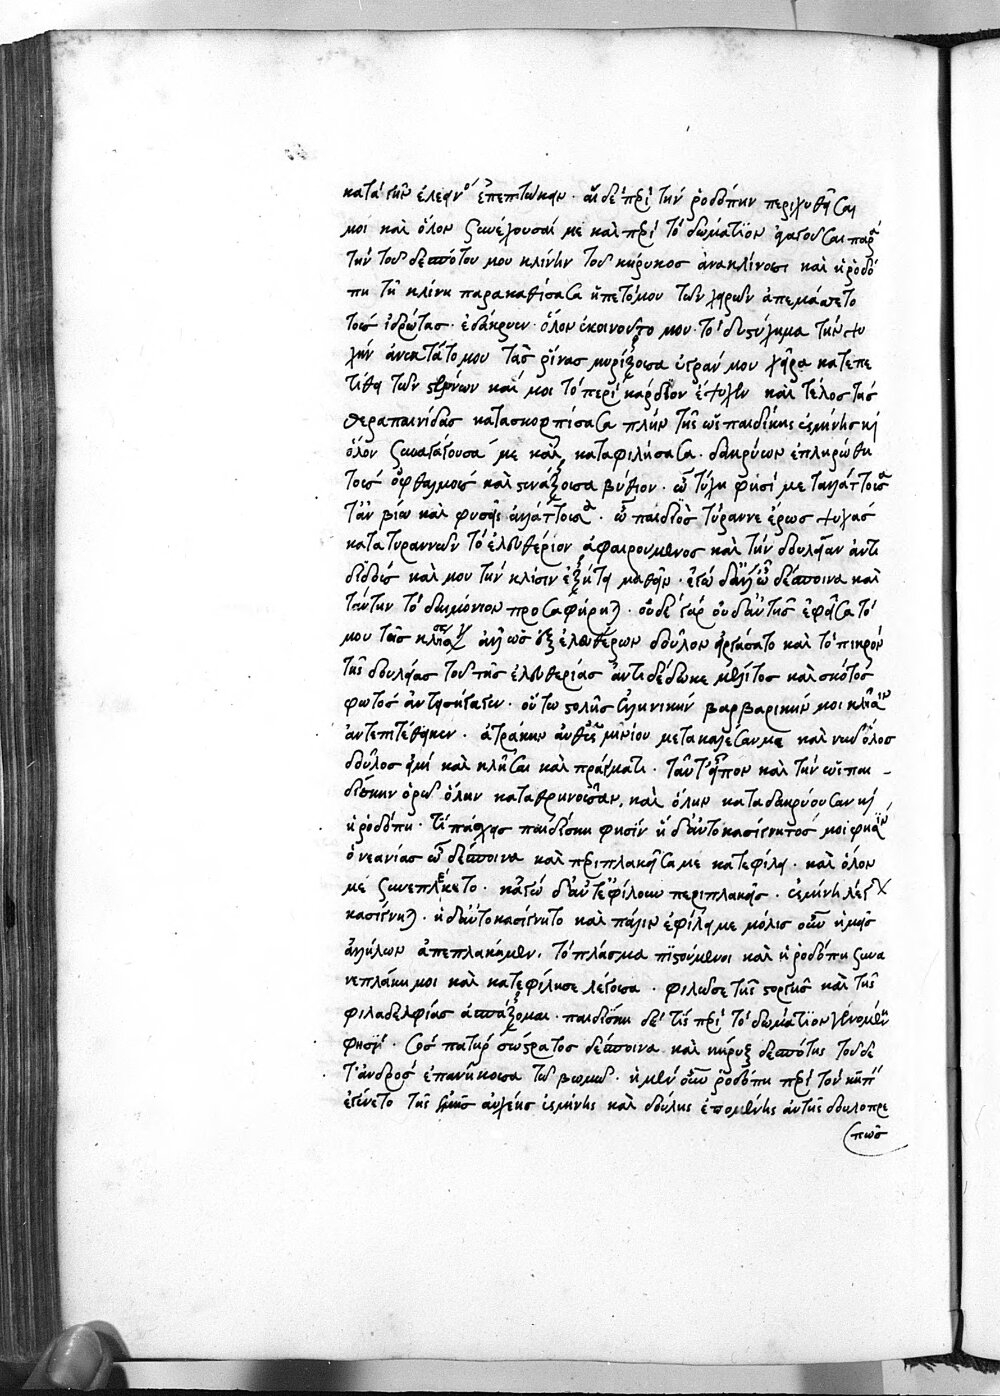 κατὰ τὴν ἐλεεινὸ ἐπεπτώκειν · αἱ δὲ περὶ τὴν ῥοδόπην περιχυθεῖσαί
μοι καὶ ὅλον συνέχουσαί με καὶ περὶ τὸ δωμάτιον ἀγαγοῦσαι παρὰ
τὴν τοῦ δεσπότου μου κλίνην τοῦ κήρυκος ἀνακλίνουσι καὶ ἡ ῥοδό
πη τῇ κλίνῃ παρακαθίσασα ἥπτετό μου τῶν χειρῶν ἀπεμάττετο
τοὺς ἱδρῶτας · ἐδάκρυεν · ὅλον ἐκοινοῦτο μου τὸ δυστύχημα τὴν ψυ
χὴν ἀνεκτᾶτό μου τὰς ῥῖνας μυρίζουσα ὑγρὰν μου χεῖρα κατεπε
τίθει τῶν στέρνων καί μοι τὸ περὶ κάρδιον ἔψυχεν καὶ τέλος τὰς
θεραπαινίδας κατασκορπίσασα πλὴν τῆς ὡς παιδίσκης ὑσμίνης κἀ
ὅλον συναγαγοῦσά με καὶ καταφιλήσασα · δακρύων ἐπληρώθη
τοὺς ὀφθαλμοὺς καὶ στενάζουσα βύθιον · ὦ τύχη φησί με ταλάττουσα
τὸν βίον καὶ φύσεις ἀλλάττουσα · ὦ παιδίον τύραννε ἔρως ψυχὰς
κατατυραννῶν τὸ ἐλευθέριον ἀφαιρούμενος καὶ τὴν δουλείαν ἀντι
διδοὺς καί μου τὴν κλῆσιν ἐξήτει μαθεῖν · ἐγὼ δ' ἀλλ' ὦ δέσποινα καὶ
ταύτην τὸ δαιμόνιον προσαφήρηται · οὐδὲ γὰρ οὐδ' αὐτῆς ἐφείσατό
μου τῆς κλήσεως ἀλλ' ὡς ἐξ ἐλευθέρων δοῦλον εἰργάσατο καὶ τὸ πικρὸν
τῆς δουλείας τοῦ τῆς ἐλευθερίας ἀντιδέδωκε μέλιτος καὶ σκότος
φωτὸς ἀντεισήγαγεν · οὕτω στολῆς ἑλληνικὴν βαρβαρικὴν μοι κλῆσιν
ἀντεπιτέθηκεν · ἀτράκην ἀνθ' ὑσμινίου μετακαλέσαν με καὶ νῦν ὅλος
δοῦλος εἰμὶ καὶ κλήσει καὶ πράγματι · ταῦτ' εἶπον καὶ τὴν ὡς παι
δίσκην ὁρῶ ὅλην καταθρηνοῦσαν, καὶ ὅλην καταδακρύουσαν καὶ
ἡ ῥοδόπη · τί πάσχεις παιδίσκη φησίν ἡ δ' αὐτοκασίγνητός μοι φησὶν
ὁ νεανίας ὦ δέσποινα καὶ περιπλακεῖσά με κατεφίλει · καὶ ὅλον
με συνεπλέκετο · κἀγὼ δ' ἀντεφίλουν περιπλακεὶς · ὑσμίνη λέγων
κασιγνήτη · ἡ δ' αὐτοκασίγνητο καὶ πάλιν ἐφίλει με μόλις οὖν ἡμεῖς
ἀλλήλων ἀπεπλάκημεν. τὸ πλάσμα πιστούμενοι καὶ ἡ ῥοδόπη συνα
νεπλάκη μοι καὶ κατεφίλησε λέγουσα · φιλῶ σε τῆς στοργῆς καὶ τῆς
φιλαδελφίας ἀσπάζομαι · παιδίσκη δέ τις περὶ τὸ δωμάτιον γενομένη
φησὶ · σὸς πατὴρ σώστρατος δέσποινα καὶ κῆρυξ δεσπότης τοῦδε
τἀνδρὸς ἐπανῆκον τοῦ βωμοῦ · ἡ μὲν οὖν ῥοδόπη περὶ τὸν κῆπον
ἐγένετο τῆς ἐμῆς αὐλῆς ὑσμίνης καὶ δούλης ἑπομένης αὐτῆς δουλοπρε
πῶς